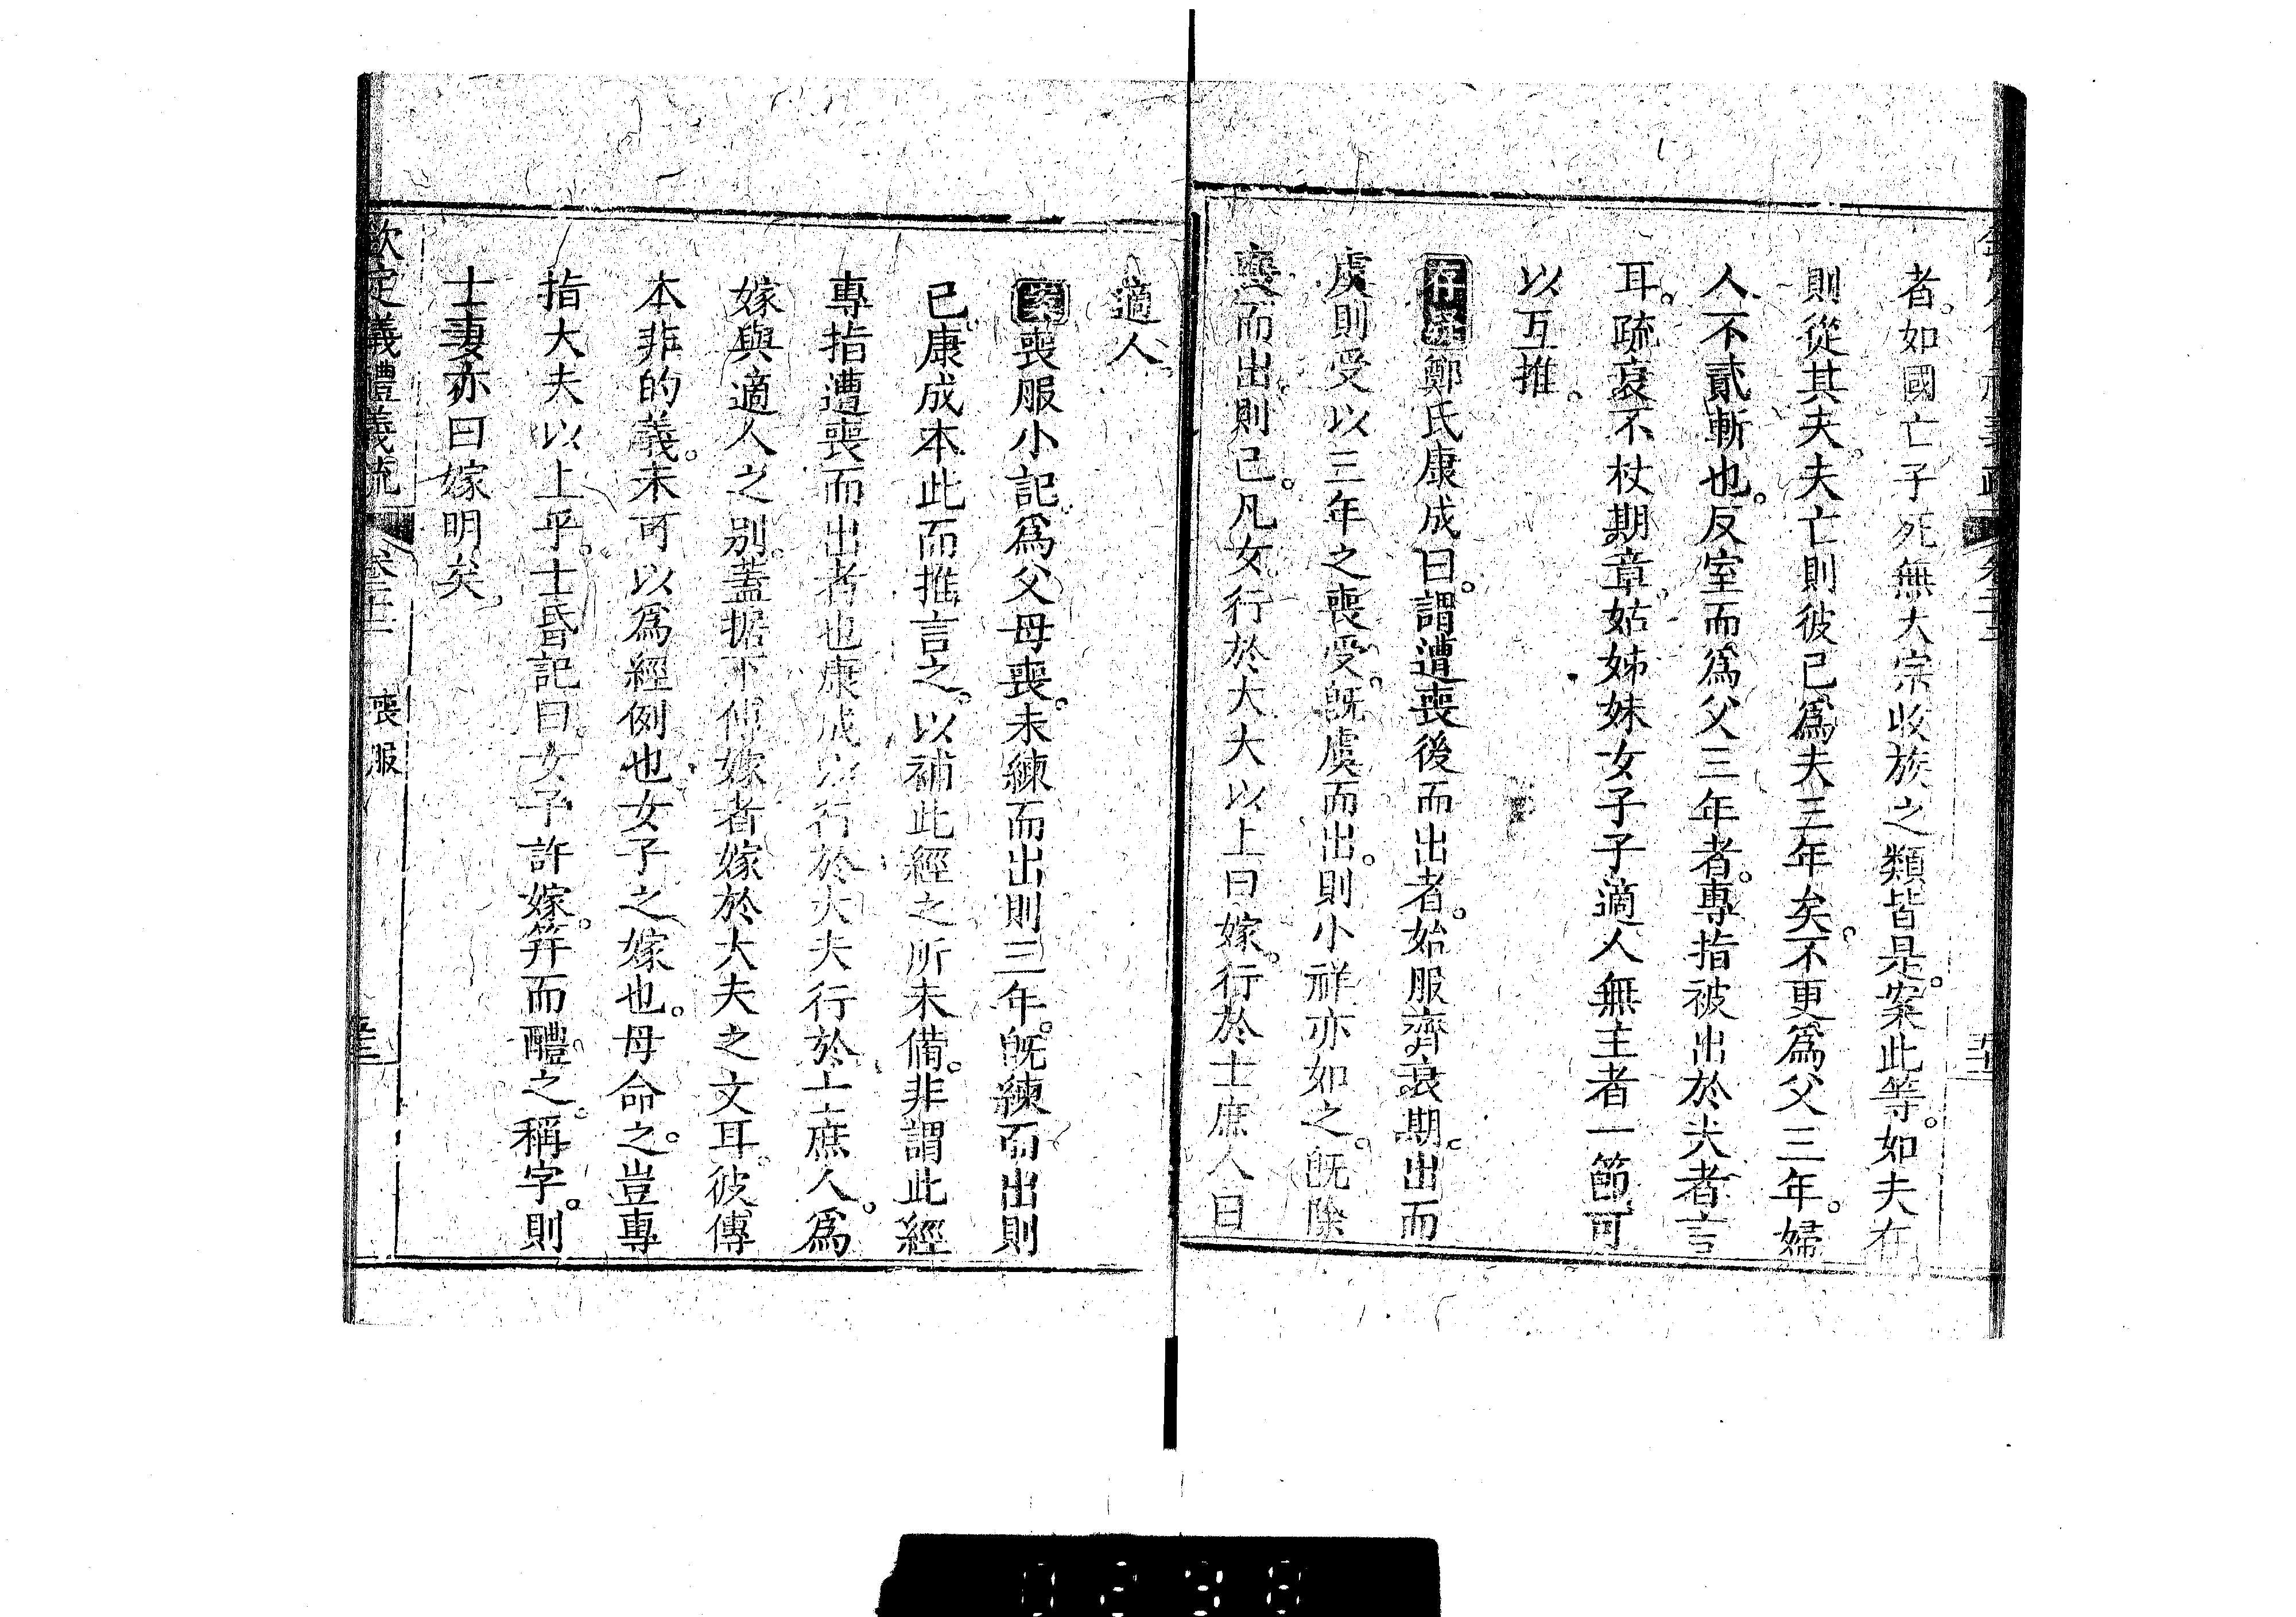 者如國亡子死無大宗收族之類皆是案此等如夫在
則從其夫夫亡則彼已爲夫三年矣不更爲父三年婦
人不貳斬也反室而爲父三年者專指被出於夫者言
耳疏衰不杖期章姑姊妹女子子適人無主者一節可
以互推
存疑鄭氏康成曰謂遭喪後而出者始服齊衰期出而
虞則受以三年之喪受旣虞而出則小祥亦如之旣除
喪而出則已凡女行於大夫以上曰嫁行於士庶人曰
適人
案喪服小記爲父母喪未練而出則三年旣練而出則
已康成本此而推言之以補此經之所未備非謂此經
專指遭喪而出者也康成以行於大夫行於士庶人爲
嫁與適人之別蓋据下傳嫁者嫁於大夫之文耳彼傳
本非的義未可以爲經例也女子之嫁也母命之豈專
指大夫以上乎士昏記曰女子許嫁笄而醴之稱字則
士妻亦曰嫁明矣
欽定義禮義疏 喪服